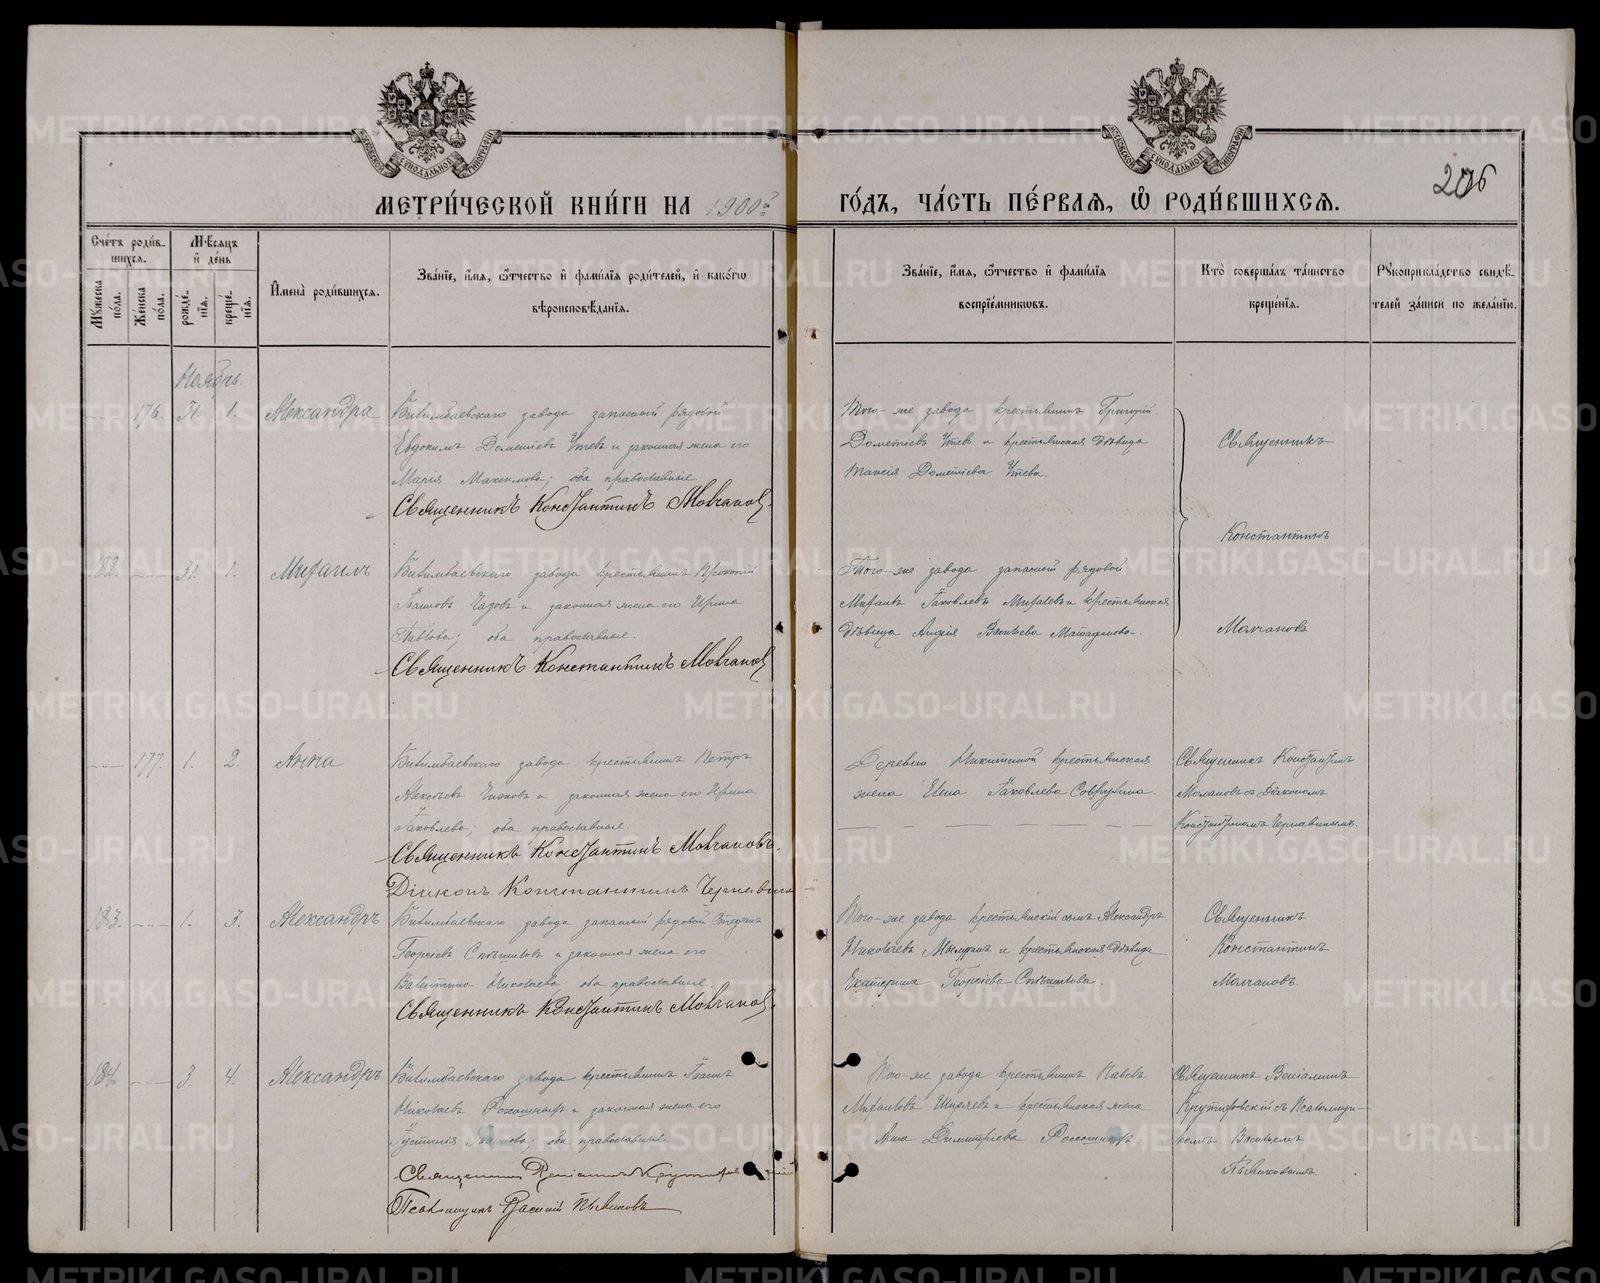 МЕТРИ́ЧЕСКОЙ КНИ́ГИ НА 1900й
ГО́ДЪ, ЧА́СТЬ ПЕ́РВАЯ, Ѽ РОДИ́ВШИХСЯ.
206
Сче́тъ роди́вшихся.
Му́жеска по́ла.
Же́нска по́ла.
Мѣ́сяцъ и҆ де́нь
рожде́нїя.
креще́нїя.
И҆мена̀ роди́вшихся.
Зва́нїе, и҆́мя, ѻ҆́тчество и҆ фами́лїя роди́телей, и҆ како́гѡ
вѣроисповѣ́данїя.
Зва́нїе, и҆́мя, ѻ҆́тчество и҆ фами́лїя
воспрїе́мниковъ.
Кто̀ соверша́лъ та́инство
креще́нїя.
Рꙋкоприкла́дство свидѣ́-
телей за́писи по жела́нїю.
Ноябрь.
176. 31. 1. Александра
Билимбаевскаго завода запасный рядовой
Евдокимъ Дометіевъ Утевъ и законная жена его
Марія Максимова; оба православные.
Священникъ Константинъ Молчановъ
Того-же завода крестьянинъ Григорій
Дометіевъ Утевъ и крестьянская дѣвица
Таисія Дометіева Утева.
Священникъ
Константинъ
Молчановъ
182. 31. 1. Михаилъ
Билимбаевскаго завода крестьянинъ Прокопій
Ивановъ и законная жена его Ирина
Павлова; оба православные.
Священникъ Константинъ Молчановъ
Того-же завода запасный рядовой
Михаилъ Яковлевъ и крестьянская
дѣвица Васильева
177. 1. 2. Анна
Билимбаевскаго завода крестьянинъ Петръ
Алексѣевъ и законная жена его Ирина
Яковлева; оба православные.
Священникъ Константинъ Молчановъ.
Діаконъ Константинъ
Деревни крестьянская
жена Елена Яковлева
Священникъ Константинъ
Молчановъ съ Діакономъ
Константиномъ
183. 1. 3. Александръ
Билимбаевскаго завода запасный рядовой Стефанъ
Георгіевъ и законная жена его
Валентина Николаева оба православные.
Священникъ Константинъ Молчановъ
Того-же завода крестьянскій сынъ Александръ
Николаевъ и крестьянская дѣвица
Екатерина Георгіева
Священникъ
Константинъ
Молчановъ.
184. 3. 4. Александръ
Билимбаевскаго завода крестьянинъ Иванъ
Николаевъ и законная жена его
Іустинія Иванова; оба православные.
Священникъ
Псаломщикъ Василій
Того-же завода крестьянинъ Павелъ
Михаиловъ Ширяевъ и крестьянская жена
Анна Димитріева
Священникъ Веніаминъ
съ Псаломщи-
комъ Василіемъ
METRIKI.GASO-URAL.RU